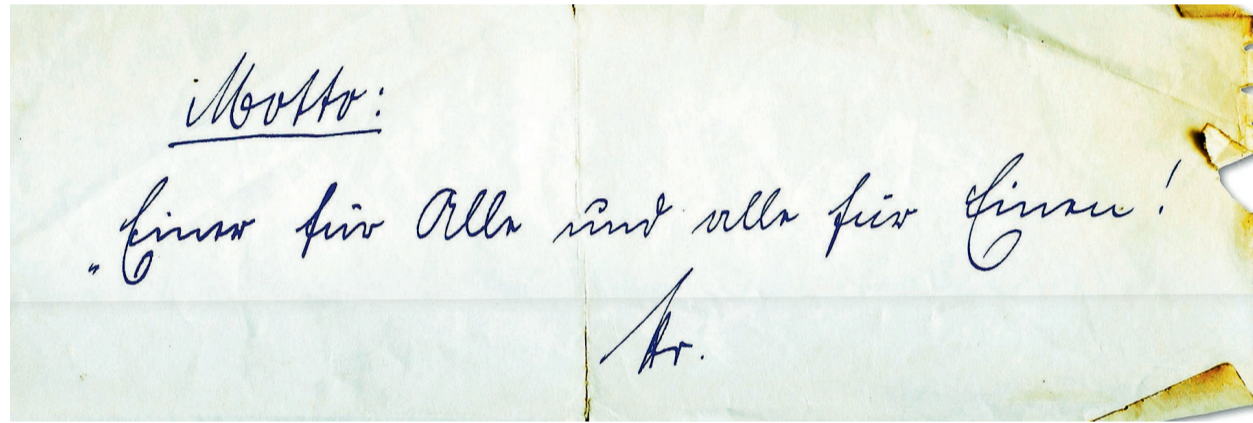 Motto:
„Einer für Alle und alle für Einen!